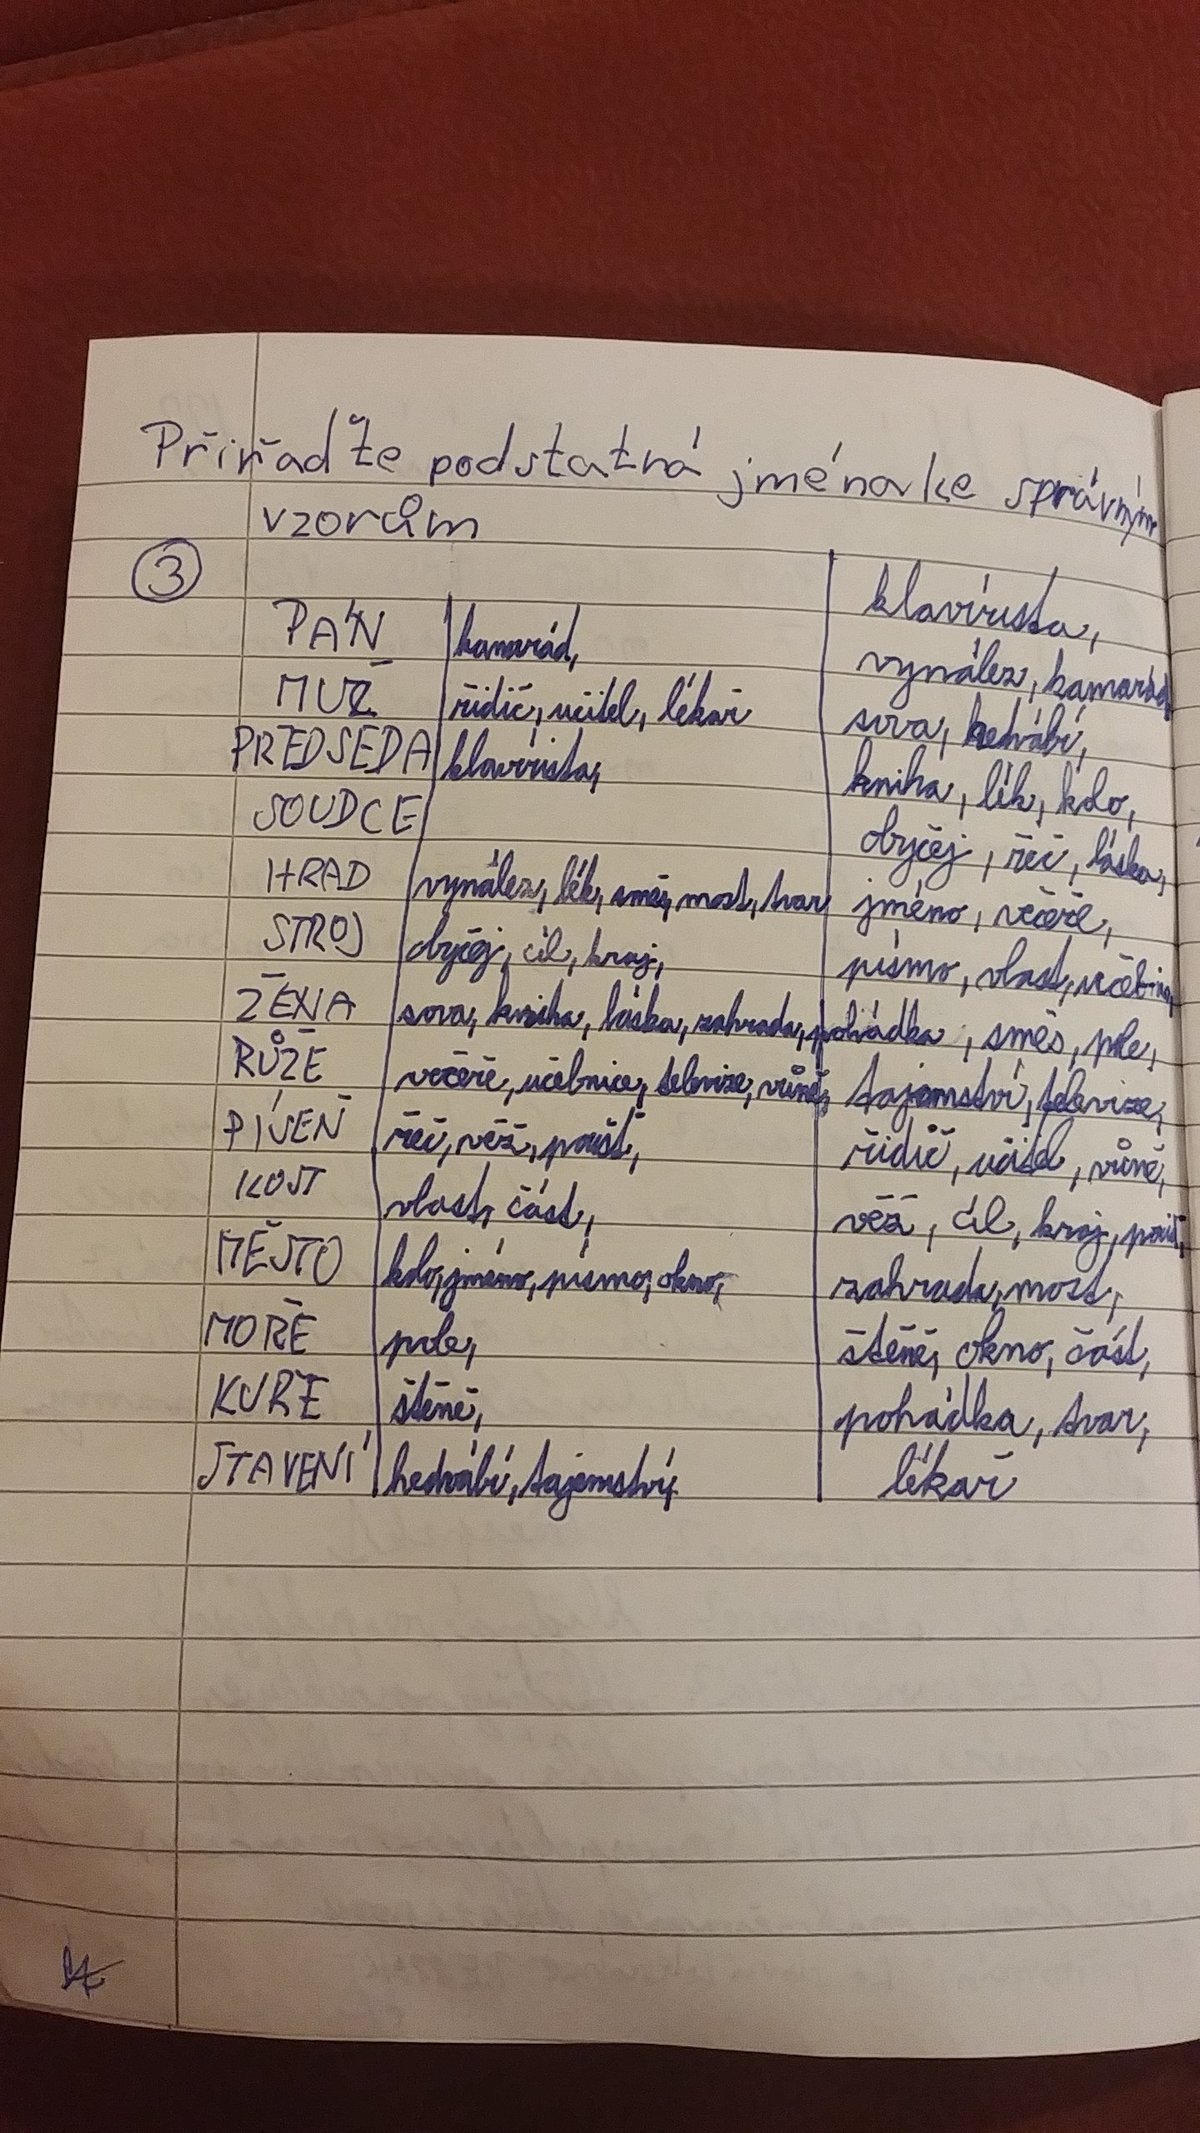 Přiřaďte podstatná jména ke správným
vzorům
③
PÁN kamarád, klavírista,
MUŽ řidič, učitel, lékař vynález, kamarád
PŘEDSEDA klavírista, sova, hedvábí,
SOUDCE kniha, lék, kdo,
HRAD vynález, lék, směs, most, tvar obyčej, řeč, láska,
STROJ obyčej, cíl, kraj, jméno, večeře,
ŽENA sova, kniha, láska, zahrada, pohádka písmo, vlast, učebnice
RŮŽE večeře, učebnice, televize, vůně, , směs, pole,
PÍSEŇ řeč, věž, poušť, tajemství, televize,
KOST vlast, část, řidič, učitel, vůně,
MĚSTO kdo, jméno, písmo, okno, věž, cíl, kraj, poušť,
MOŘE pole, zahrada, most,
KUŘE štěně, štěně, okno, část,
STAVENÍ hedvábí, tajemství, pohádka, tvar,
lékař